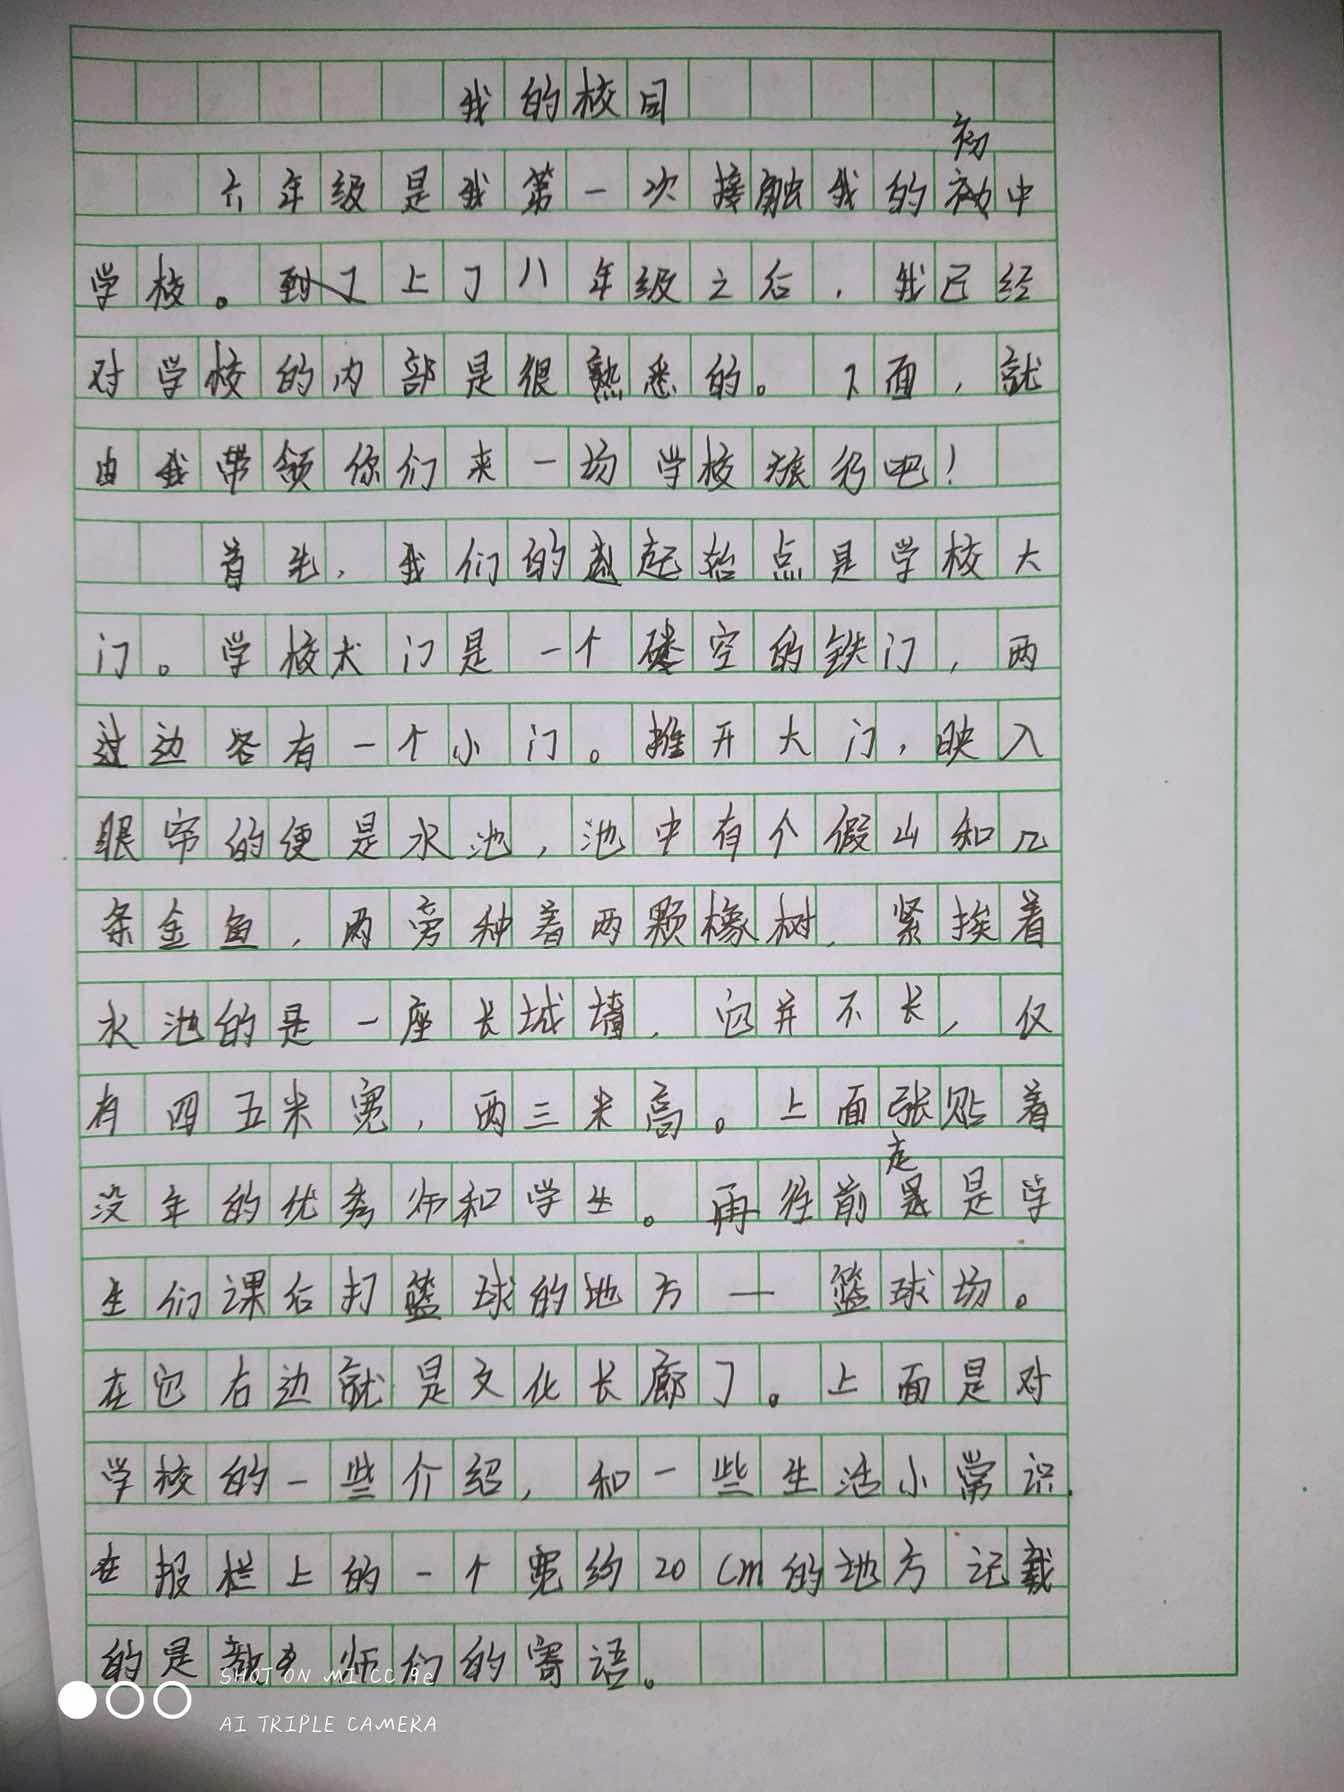 我的校园
六年级是我第一次接触我的初中
学校。上了八年级之后，我已经
对学校的内部是很熟悉的。下面，就
由我带领你们来一场学校旅行吧！
首先，我们的起始点是学校大
门。学校大门是一个镂空的铁门，两
边各有一个小门。推开大门，映入
眼帘的便是水池，池中有个假山和几
条金鱼，两旁种着两颗橡树，紧挨着
水池的是一座长城墙，它并不长，仅
有四五米宽，两三米高。上面张贴着
没年的优秀师和学生。再往前走是学
生们课后打篮球的地方—篮球场。
在它右边就是文化长廊了。上面是对
学校的一些介绍，和一些生活小常识.
在报栏上的一个宽约20cm的地方记载
的是教师们的寄语。
SHOT ON MI CC 9e
AI TRIPLE CAMERA